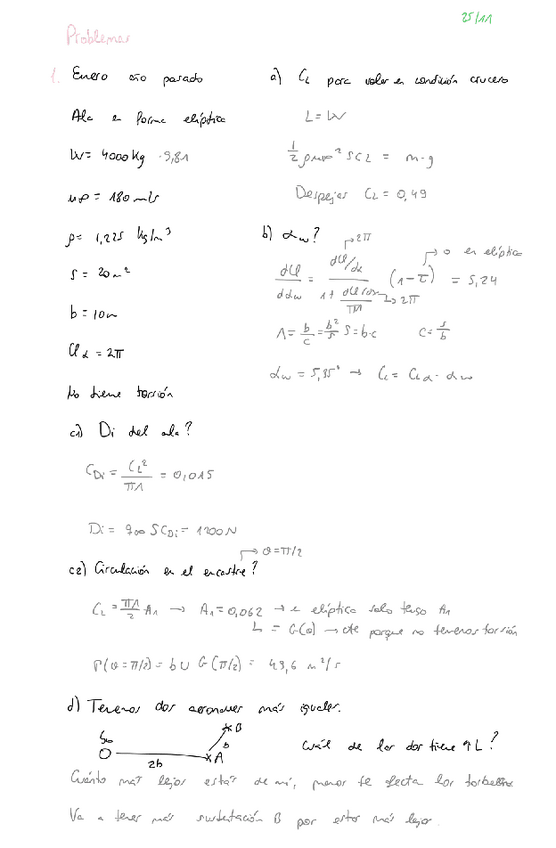 25/11
Problemas
1. Enero año pasado
Ala en forma elíptica
W = 4000 Kg · 9,81
u∞ = 180 m/s
ρ = 1,225 kg/m³
S = 20 m²
b = 10 m
Clα = 2π
No tiene torsión
a) CL para volar en condición crucero
L = W
1/2 ρ u∞² S CL = m · g
Despejas CL = 0,49
b) αw?
dCL/dαw = (dCl/dα → 2π) / (1 + (dCl/dα → 2π)/πΛ) (1 - τ → 0 en elíptica) = 5,24
Λ = b/c = b²/S S = b·c c = S/b
αw = 5,35° → CL = CLα · αw
c1) Di del ala?
CDi = CL²/πΛ = 0,015
Di = q∞ S CDi = 1200 N
c2) Circulación en el encastre? → θ = π/2
CL = πΛ/2 A1 → A1 = 0,062 → en elíptica solo tengo A1
L = G(θ) → cte porque no tenemos torsión
Γ(θ = π/2) = b U G(π/2) = 49,6 m²/s
d) Tenemos dos aeronaves más iguales.
2b A b B
Cuál de las dos tiene ↑ L?
Cuánto más lejos estás de mí, menos te afecta los torbellinos
Va a tener más sustentación B por estar más lejos.